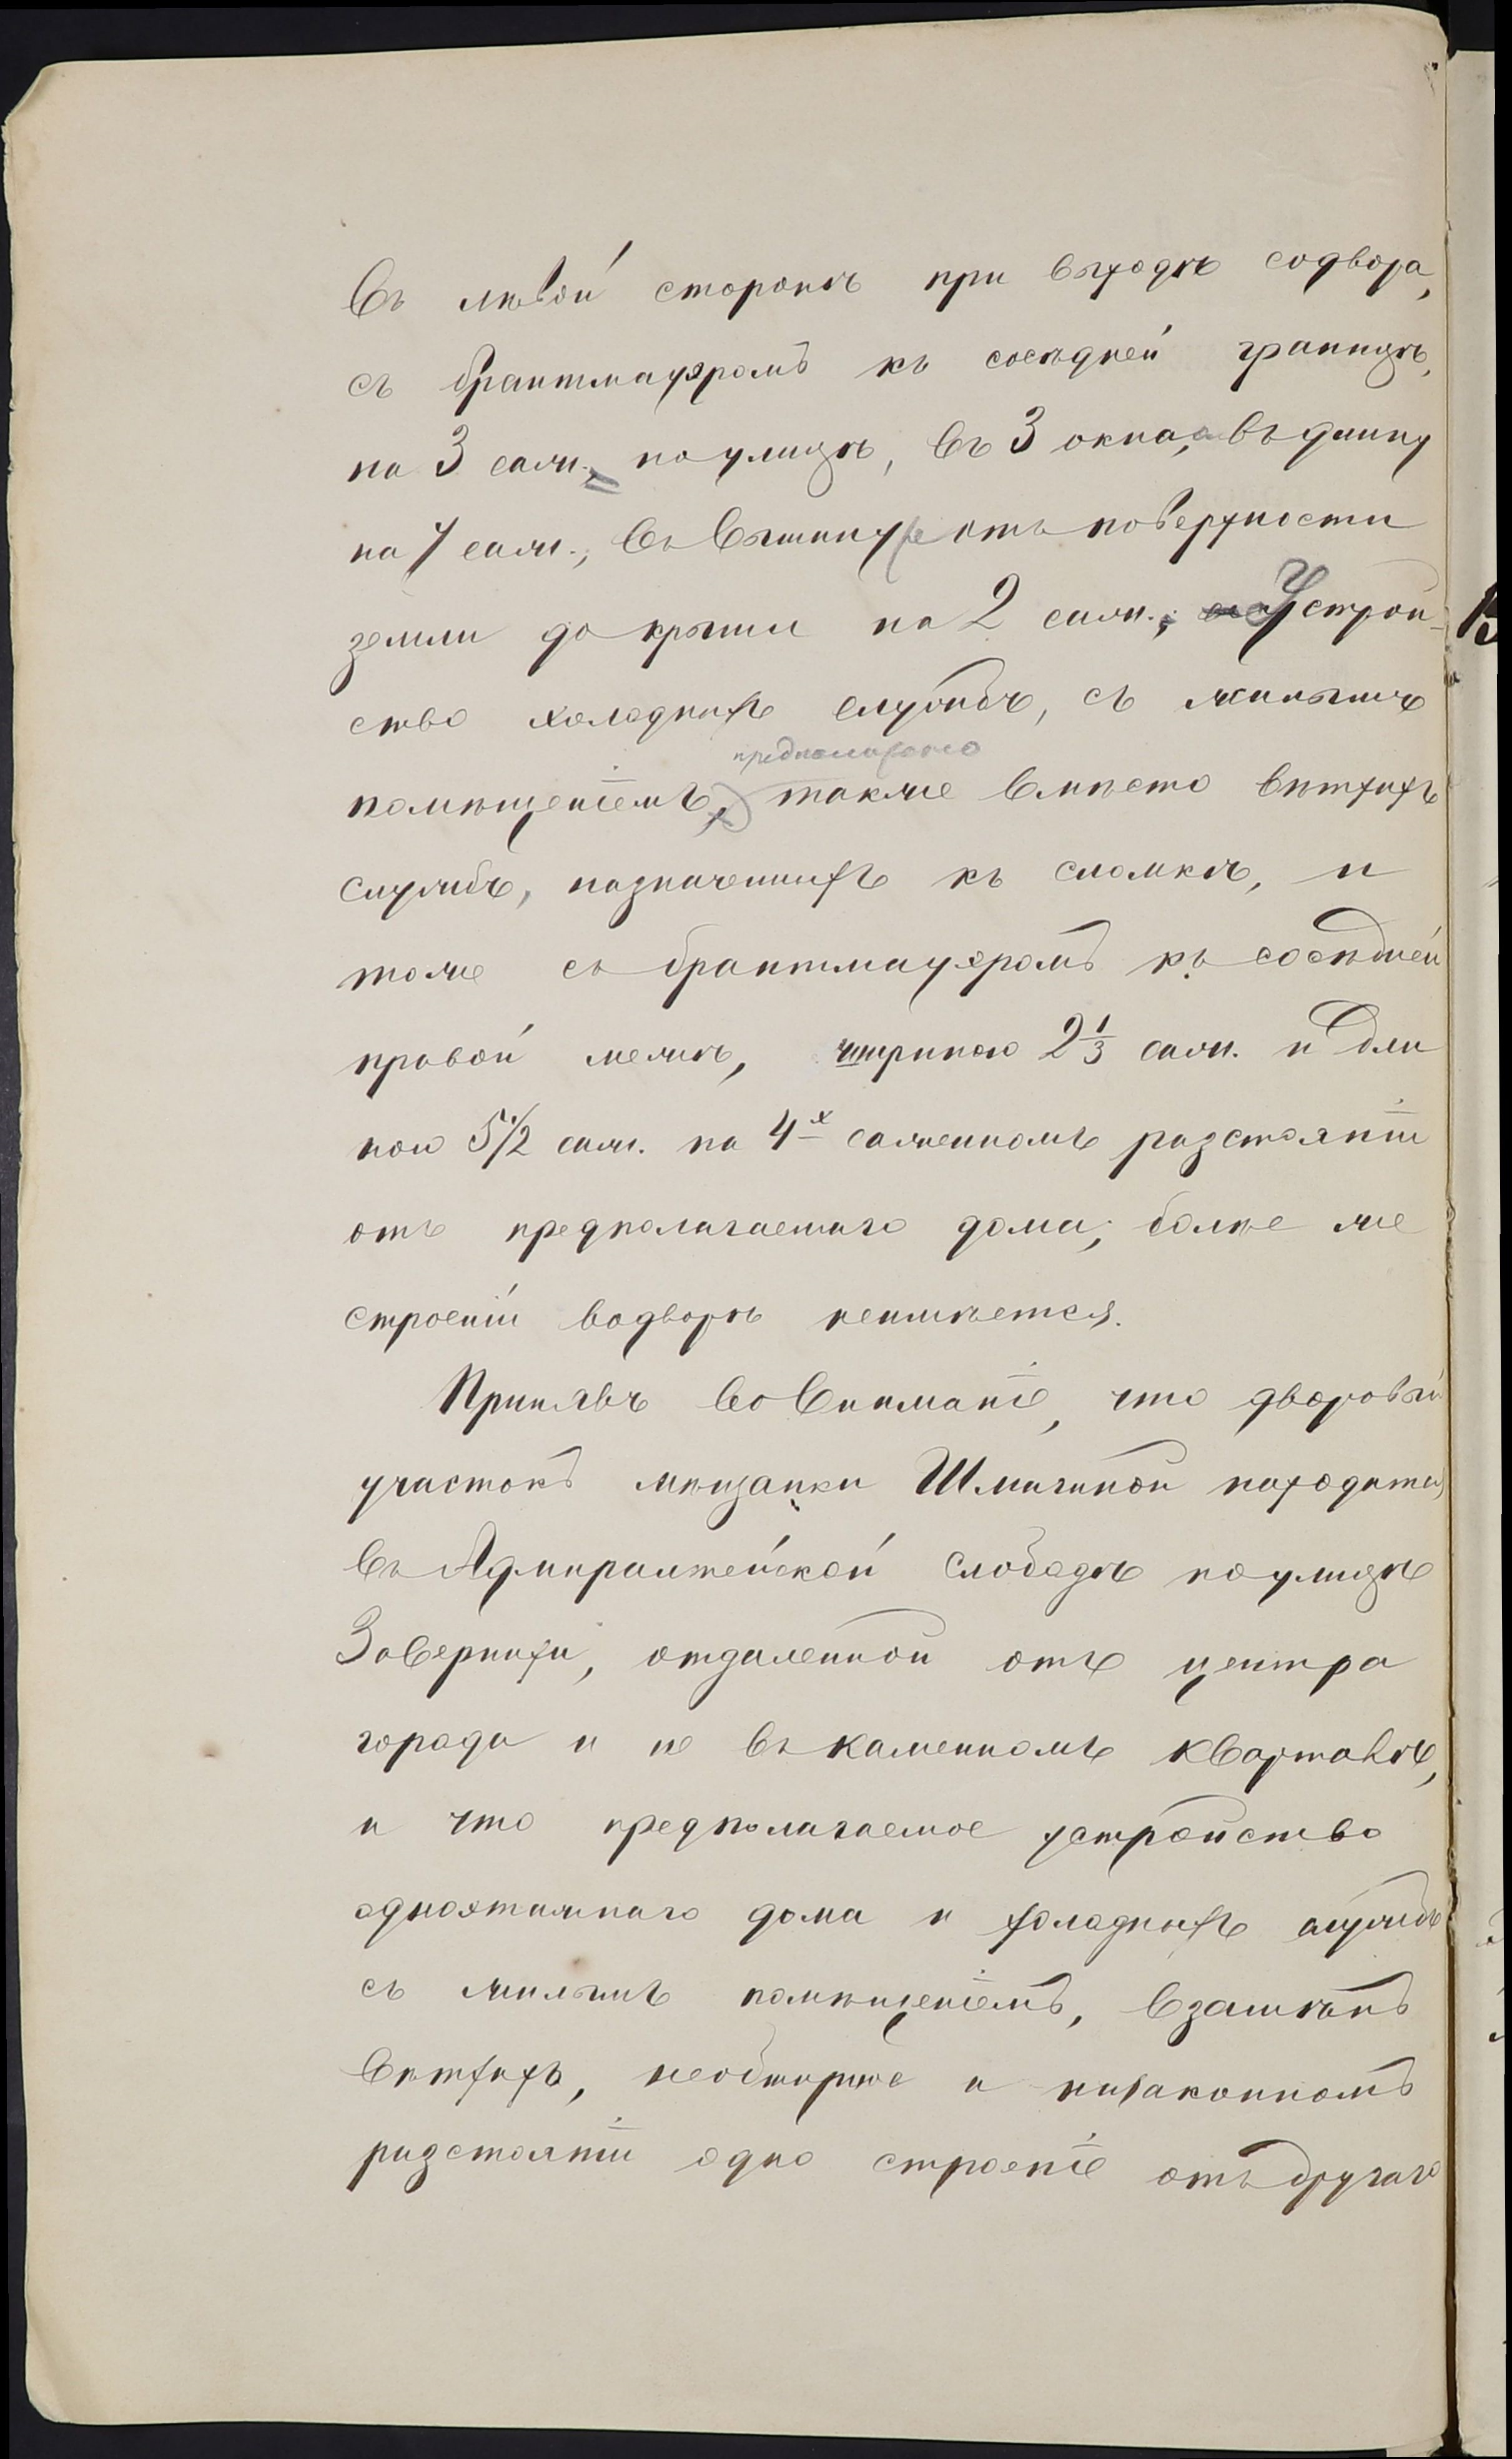 Въ лѣвой сторонѣ при выходѣ содвора,
съ брантмауэромъ къ сосѣдней границѣ,
на 3 саж., поулицѣ, въ 3 окна, а въ длину
на 7 саж., въ вышину отъ поверхности
земли до крыши на 2 саж.; Устрой-
ство холодныхъ службъ, съ жилымъ
предположено
помѣщеніемъ, также вмѣсто ветхихъ
службъ, назначенныхъ къ сломкѣ, и
тоже съ брантмауэромъ къ сосѣдней
правой межѣ, шириною 2 1/3 саж. и дли
ною 5 1/2 саж. на 4х саженномъ разстояніи
отъ предполагаемаго дома; болѣе же
строеній водворѣ неимѣется.
Принявъ во вниманіе, что дворовый
участокъ мѣщанки Шмагиной находится
въ Адмиралтейской слободѣ поулицѣ
Завернихи, отдаленной отъ центра
города и не въ каменномъ кварталѣ,
и что предполагаемое устройство
одноэтажнаго дома и холодныхъ службъ
съ жилымъ помѣщеніемъ, взамѣнъ
ветхихъ, необширное и на законномъ
разстояніи одно строеніе отъ другаго